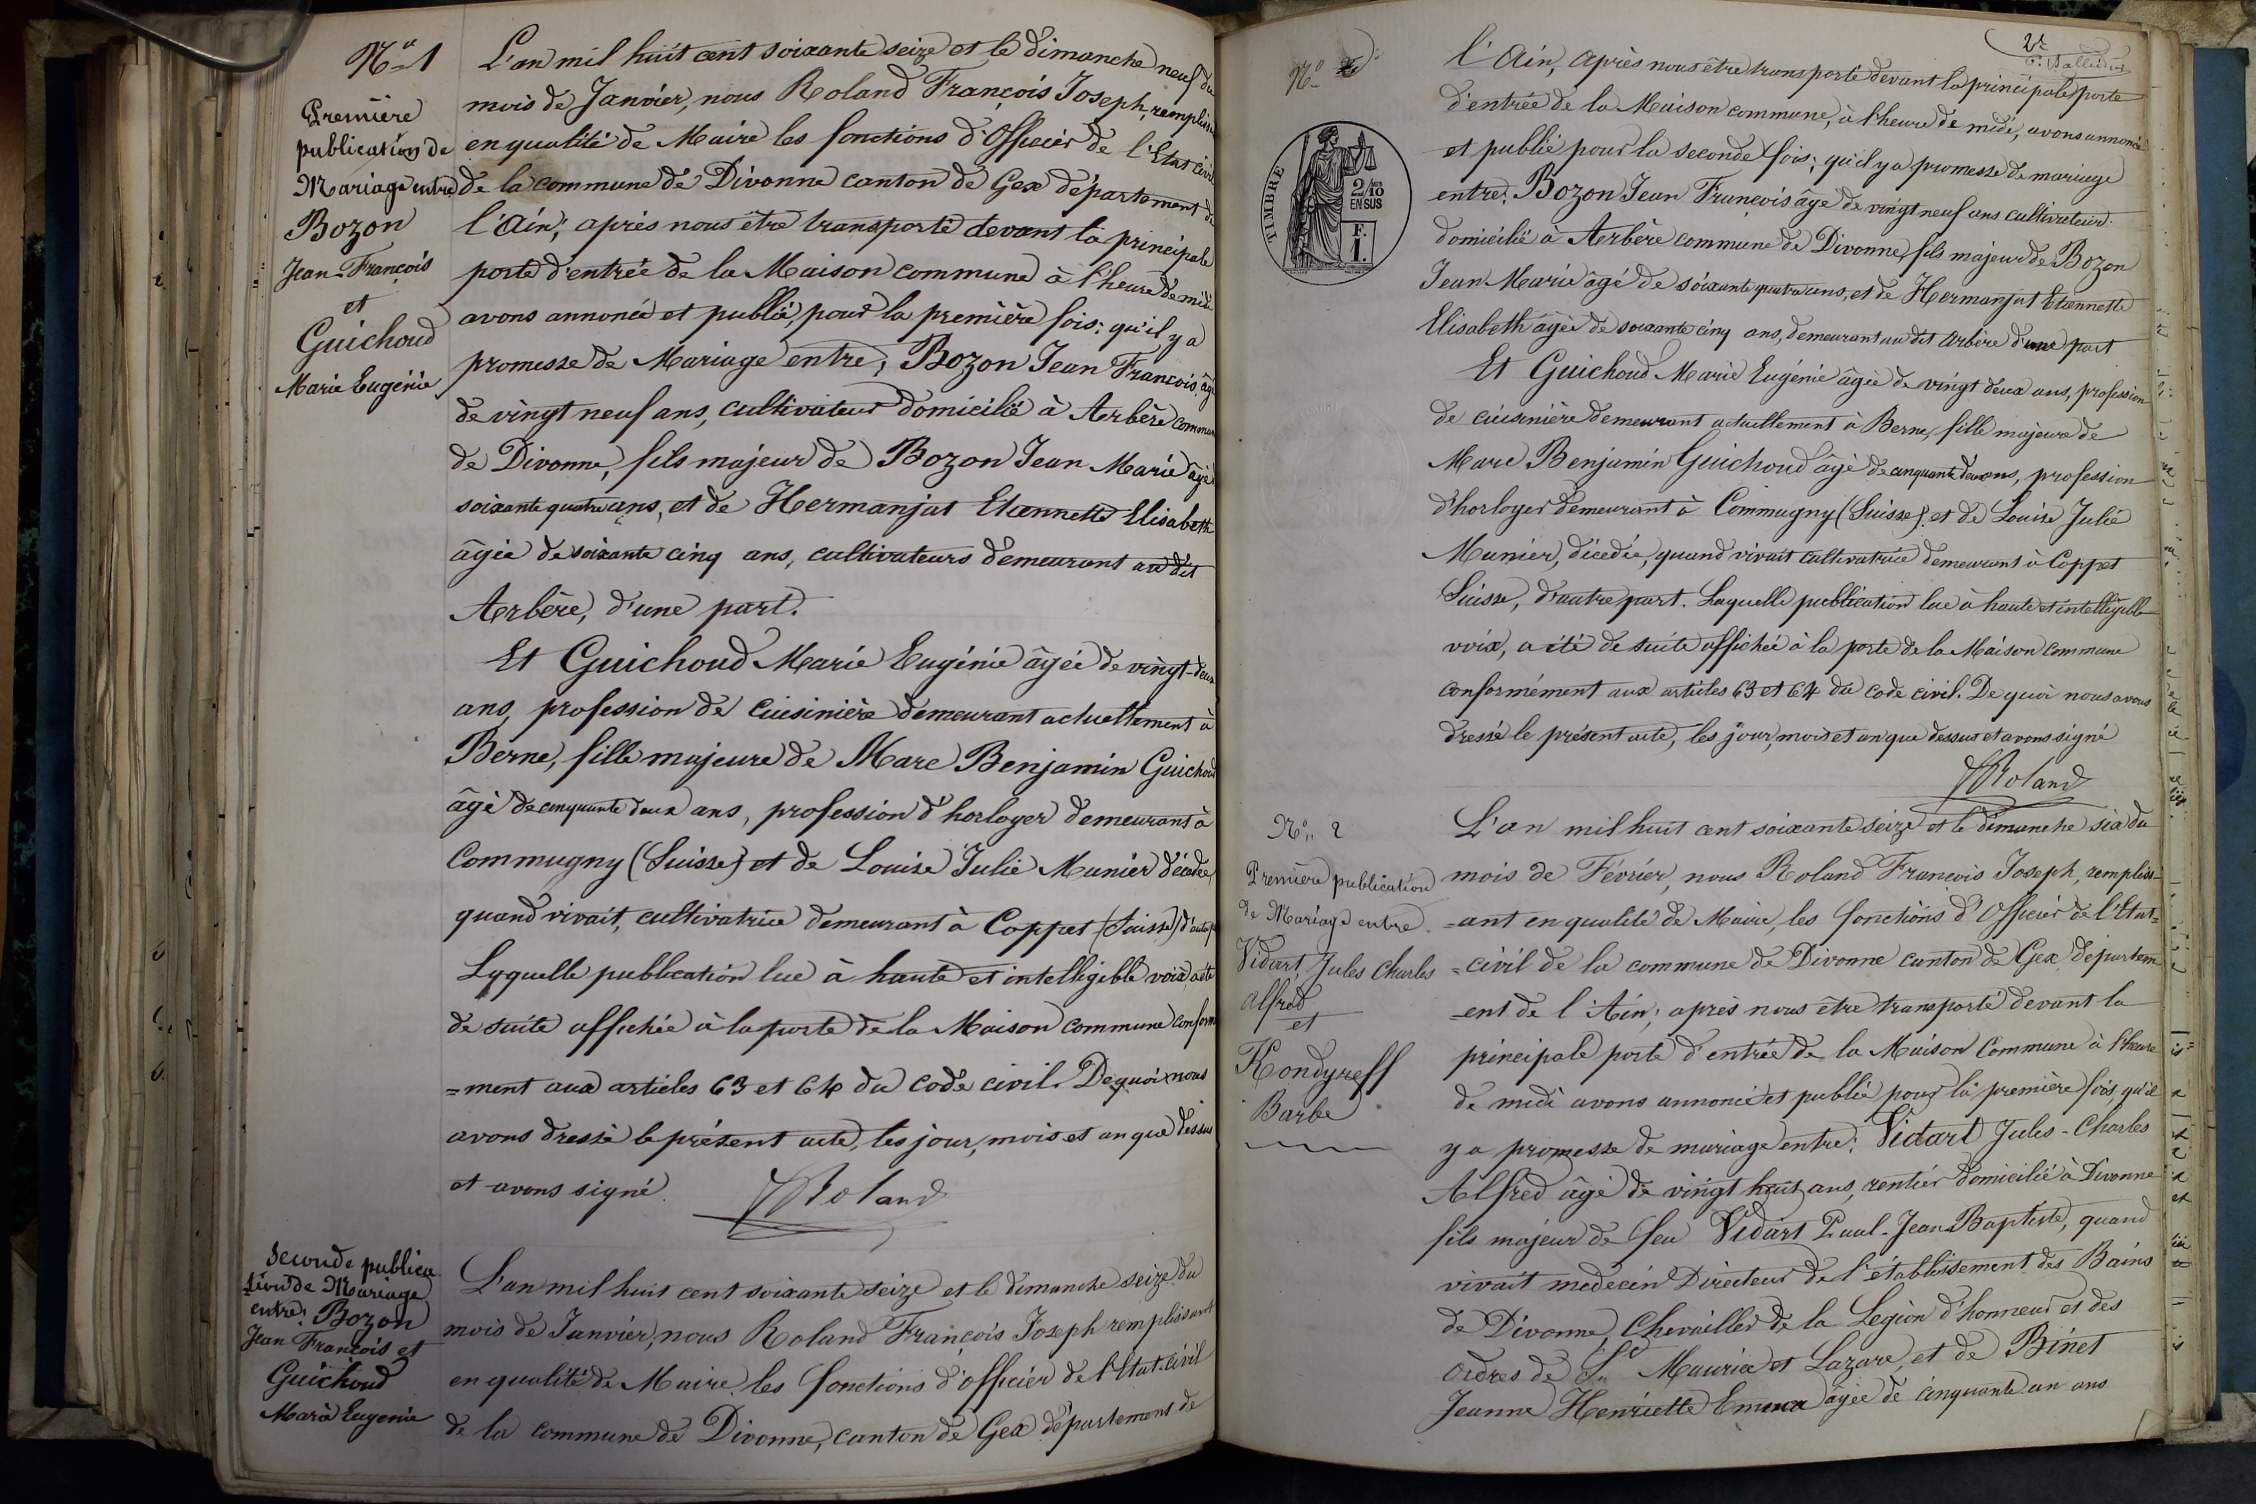 Nº 1
Première
publication de
Mariage entre
Bozon
Jean-François
et
Guichoud
Marie Eugénie
L'an mil huit cent soixante seize et le dimanche neuf du
mois de Janvier, nous Roland François Joseph, rempliss
en qualité de Maire les fonctions d'Officier de l'Etat civil
de la commune de Divonne canton de Gex département de
l'Ain; après nous être transporté devant la principale
porte d'entrée de la Maison commune à l'heure de midi
avons annoncé et publié, pour la première fois: qu'il y a
promesse de Mariage entre; Bozon Jean François, âgé
de vingt neuf ans, cultivateur domicilié à Arbère commune
de Divonne, fils majeur de Bozon Jean Marie âgé
soixante quatre ans, et de Hermanjat Etiennette Elisabeth
âgée de soixante cinq ans, cultivateurs demeurant au dit
Arbère, d'une part.
Et Guichoud Marie Eugénie âgée de vingt-deux
ans, profession de cuisinière demeurant actuellement à
Berne, fille majeure de Marc Benjamin Guichoud
âgé de cinquante deux ans, profession d'horloger demeurant à
Commugny (Suisse) et de Louise Julie Munier décédée,
quand vivait, cultivatrice demeurant à Coppet (Suisse) d'autre p
Lyquelle publication lue à haute et intelligible voix, a été
de suite affichée à la porte de la Maison commune conform
=ment aux articles 63 et 64 du code civil. De quoi nous
avons dressé le présent acte, les jour, mois et an que dessus
et avons signé.
Roland
Seconde publica
tion de Mariage
entre: Bozon
Jean François et
Guichoud
Marie Eugenie
L'an mil huit cent soixante seize et le dimanche seize du
mois de Janvier, nous Roland François Joseph remplissant
en qualité de Maire, les fonctions d'officier de l'Etat civil
de la commune de Divonne, canton de Gex département de
2e
Nº
TIMBRE
2/10
EN SUS
F.
1.
l'Ain, après nous être transporté devant la principale porte
d'entrée de la Maison commune, à l'heure de midi, avons annoncé
et publié pour la seconde fois; qu'il y a promesse de mariage
entre: Bozon Jean François âgé de vingt neuf ans cultivateur
domicilié à Arbère commune de Divonne, fils majeur de Bozon
Jean Marie âgé de soixante quatre ans, et de Hermanjat Etiennette
Elisabeth âgée de soixante cinq ans, demeurant au dit Arbère d'une part
Et Guichoud Marie Eugénie âgée de vingt deux ans, profession
de cuisinière demeurant actuellement à Berne, fille majeure de
Marc Benjamin Guichoud âgé de cinquante deux ans, profession
d'horloger demeurant à Commugny (Suisse) et de Louise Julie
Munier, décédée, quand vivait cultivatrice demeurant à Coppet
Suisse, d'autre part. Laquelle publication lue à haute et intelligible
voix, a été de suite affichée à la porte de la Maison commune
conformément aux articles 63 et 64 du code civil. De quoi nous avons
dressé le présent acte, les jour, mois et an que dessus et avons signé
Roland
Nº 2
Première publication
de Mariage entre
Vidart, Jules Charles
Alfred
et
Kondyreff
Barbe
L'an mil huit cent soixante seize et le dimanche six du
mois de Février, nous Roland François Joseph, rempliss-
=ant en qualité de Maire, les fonctions d'Officier de l'Etat=
=civil de la commune de Divonne canton de Gex départem
=ent de l'Ain; après nous être transporté devant la
principale porte d'entrée de la Maison Commune à l'heure
de midi avons annoncé et publié pour la première fois, qu'il
y a promesse de mariage entre: Vidart Jules-Charles
Alfred âgé de vingt huit ans, rentier domicilié à Divonne
fils majeur de feu Vidart Paul-Jean-Baptiste, quand
vivait medecin Directeur de l'établissement des Bains
de Divonne, Chevailler de la Legion d'honneur et des
ordres de St Maurice et Lazare, et de Binet
Jeanne Henriette Emma âgée de cinquante un ans